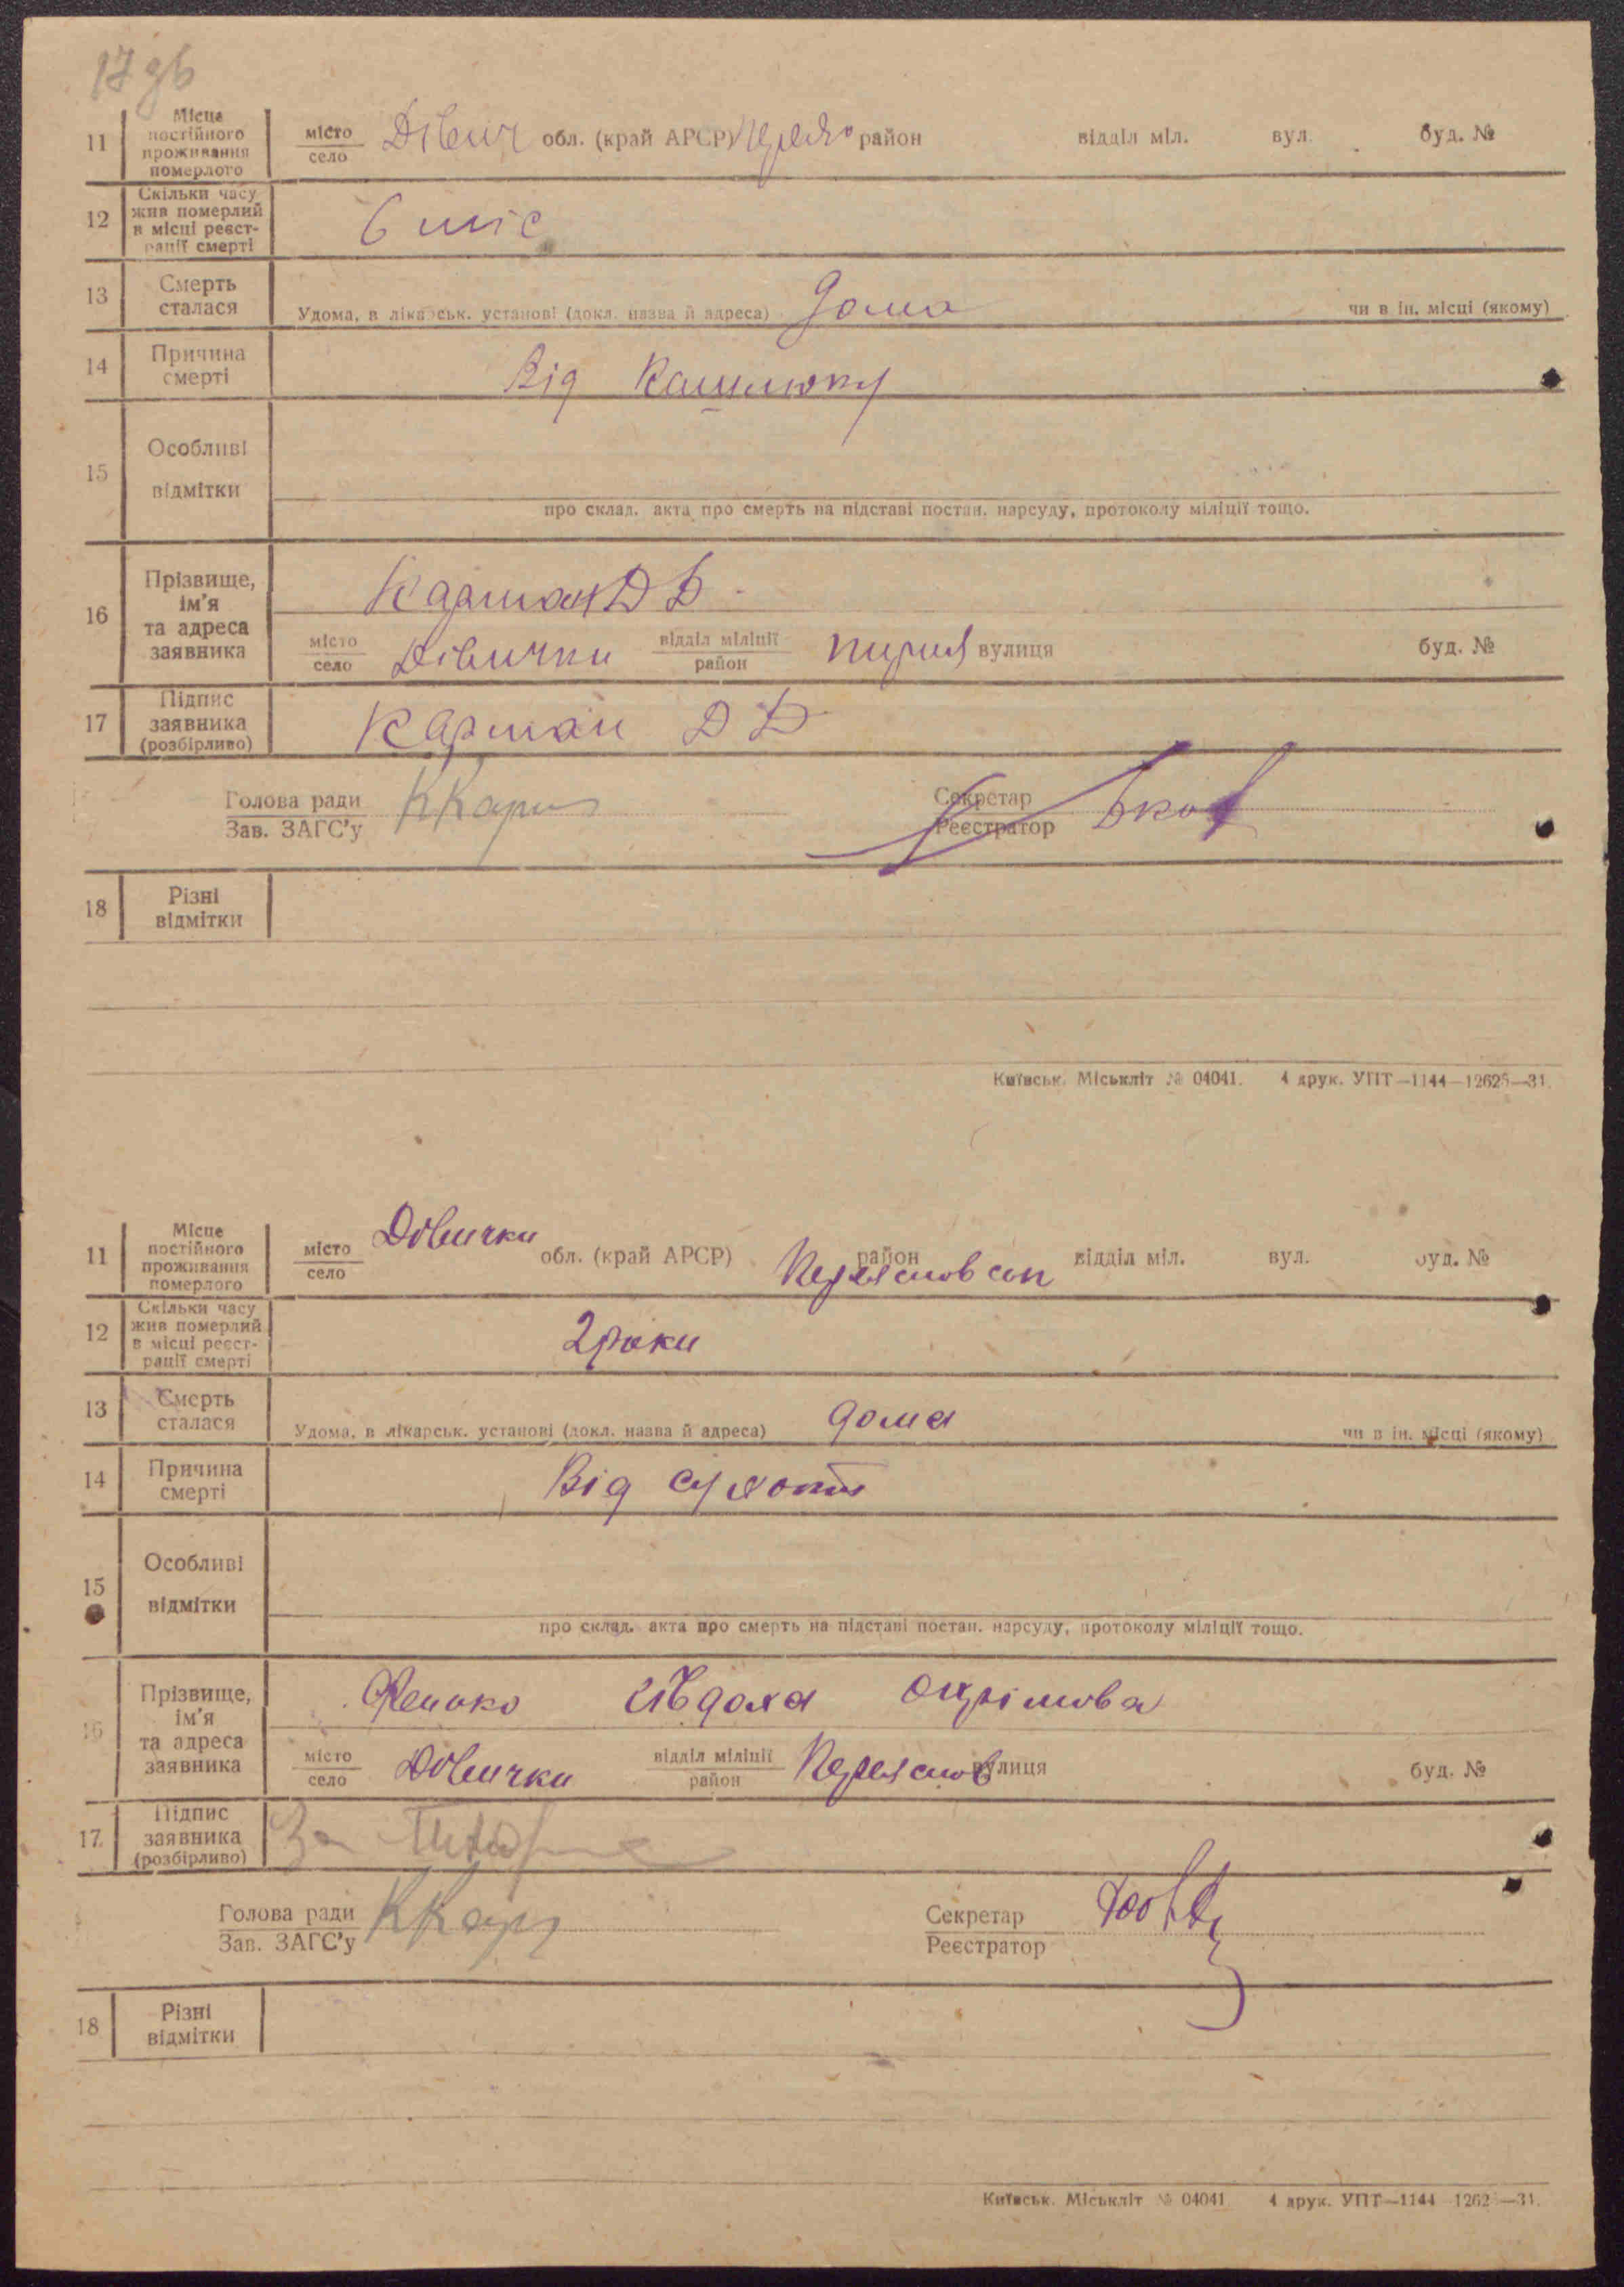 17 зв
11 Місце постійного проживання померлого місто село Дівич обл. (край АРСР) район відділ міл. вул. буд. №
12 Скільки часу жив померлий в місці реєстрації смерті 6 міс
13 Смерть сталася Удома, в лікарськ. установі (докл. назва й адреса) Дома чи в ін. місці (якому)
14 Причина смерті Від Кашлюку
15 Особливі відмітки
про склад. акта про смерть на підставі постан. нарсуду, протоколу міліції тощо.
16 Прізвище, ім'я та адреса заявника Карман Д Д
місто село Дівички відділ міліції район вулиця буд. №
17 Підпис заявника (розбірливо) Карман Д Д
Голова ради Зав. ЗАГС'у Секретар Реєстратор
18 Різні відмітки
Київськ. Міськліт № 04041. 4 друк. УПТ—1144—12625—31.
11 Місце постійного проживання померлого місто село Дівички обл. (край АРСР) район Переясловськ відділ міл. вул. буд. №
12 Скільки часу жив померлий в місці реєстрації смерті 2 роки
13 Смерть сталася Удома, в лікарськ. установі (докл. назва й адреса) дома чи в ін. місці (якому)
14 Причина смерті Від сухоти
15 Особливі відмітки
про склад. акта про смерть на підставі постан. нарсуду, протоколу міліції тощо.
16 Прізвище, ім'я та адреса заявника Явдоха Охрімова
місто село Дівички відділ міліції район Переяслов вулиця буд. №
17 Підпис заявника (розбірливо) За
Голова ради Зав. ЗАГС'у Секретар Реєстратор
18 Різні відмітки
Київськ. Міськліт № 04041 4 друк. УПТ—1144 1262 —31.